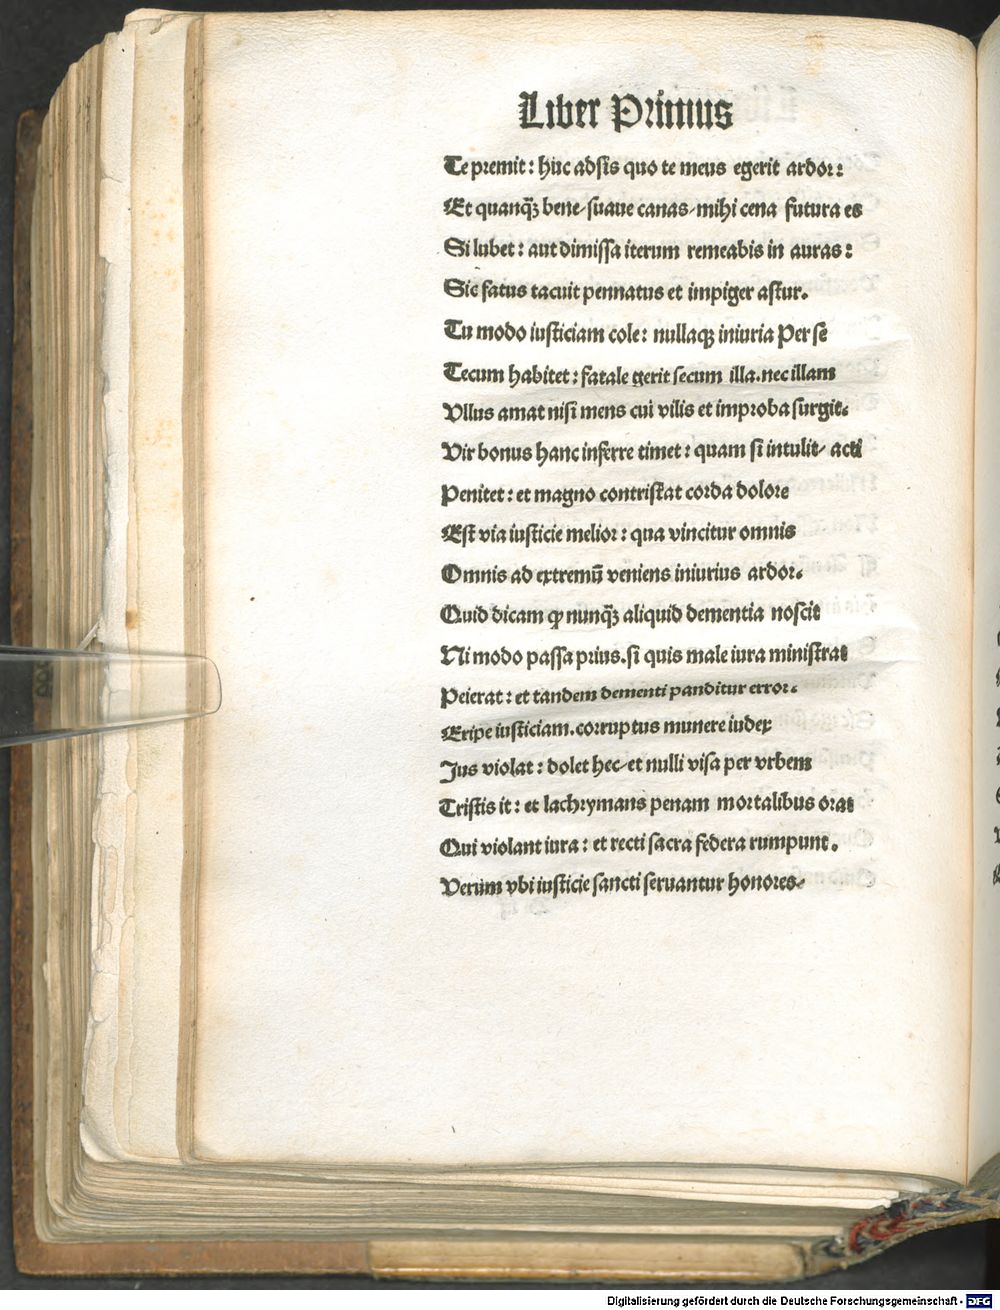 Liber Primus
Te premit: huc adsis quo te meus egerit ardor:
Et quanqꝫ bene/suaue canas/mihi cena futura es
Si lubet: aut dimissa iterum remeabis in auras:
Sic fatus tacuit pennatus et impiger astur.
Tu modo iusticiam cole: nullaqꝫ iniuria Per se
Tecum habitet: fatale gerit secum illa.nec illam
Vllus amat nisi mens cui vilis et improba surgit.
Vir bonus hanc inferre timet: quam si intulit/ acti
Penitet: et magno contristat corda dolore
Est via iusticie melior: qua vincitur omnis
Omnis ad extremū veniens iniurius ardor.
Quid dicam ꝙ nunqꝫ aliquid dementia noscit
Ni modo passa prius.si quis male iura ministrat
Peierat: et tandem dementi panditur error.
Eripe iusticiam.corruptus munere iudex
Jus violat: dolet hec/et nulli visa per vrbem
Tristis it: et lachrymans penam mortalibus orat
Qui violant iura: et recti sacra federa rumpunt.
Verum vbi iusticie sancti seruantur honores/
Digitalisierung gefördert durch die Deutsche Forschungsgemeinschaft - DFG